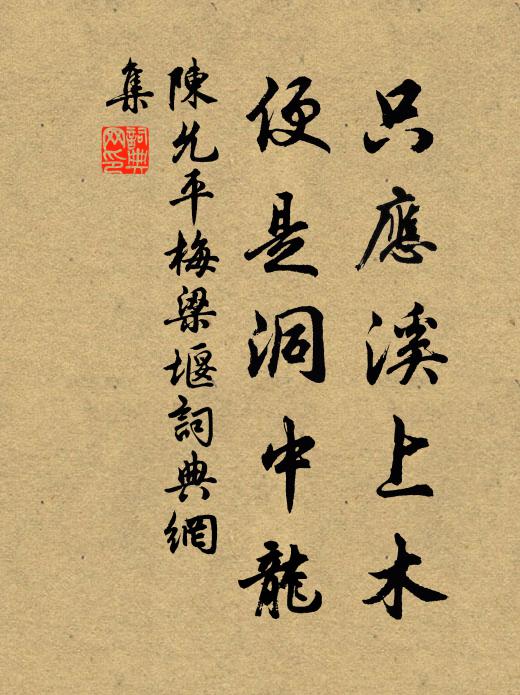 只應溪上木
便是洞中龍
陳允平梅梁堰詞典網
集
詞典網印